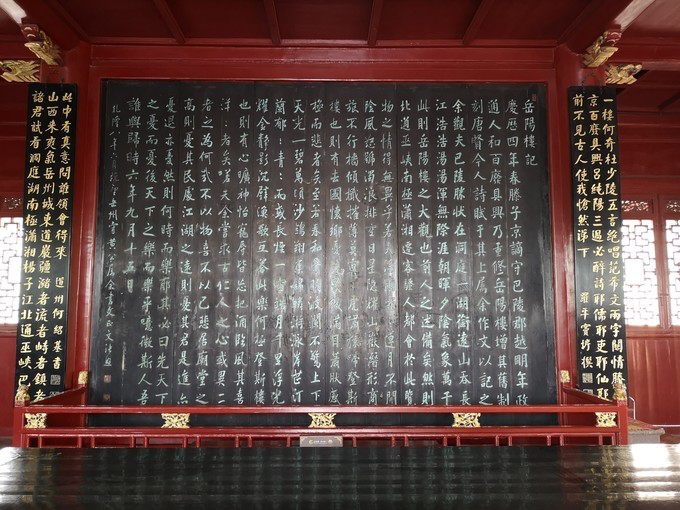 一樓何奇杜少陵五言絕唱范希文兩字關情滕子
京百廢具興呂純陽三過必醉詩耶儒耶吏耶仙耶
前不見古人使我愴然涕下
羅平竇垿撰
岳陽樓記
慶歷四年春滕子京謫守巴陵郡越明年政
通人和百廢具興乃重修岳陽樓增其舊制
刻唐賢今人詩賦于其上屬余作文以記之
余觀夫巴陵勝狀在洞庭一湖銜遠山吞長
江浩浩湯湯橫無際涯朝暉夕陰氣象萬千
此則岳陽樓之大觀也前人之述備矣然則
北通巫峽南極瀟湘遷客騷人多會於此覽
物之情得無異乎若夫霪雨霏霏連月不開
陰風怒號濁浪排空日星隱耀山岳潛形商
旅不行檣傾楫摧薄暮冥冥虎嘯猿啼登斯
樓也則有去國懷鄉憂讒畏譏滿目蕭然感
極而悲者矣至若春和景明波瀾不驚上下
天光一碧萬頃沙鷗翔集錦鱗游泳岸芷汀
蘭郁々青々而或長煙一空皓月千里浮光
耀金靜影沉璧漁歌互答此樂何極登斯樓
也則有心曠神怡寵辱皆忘把酒臨風其喜
洋々者矣嗟夫余嘗求古仁人之心或異二
者之為何哉不以物喜不以己悲居廟堂之
高則憂其民處江湖之遠則憂其君是進亦
憂退亦憂然則何時而樂耶其必曰先天下
之憂而憂後天下之樂而樂乎噫微斯人吾
誰與歸時六年九月十五日
乾隆八年
諸君試看洞庭湖南極瀟湘揚子江北通巫峽巴
山西來爽氣岳州城東道巖疆瀦者流者峙者鎮者
此中有真意問誰領會得來
道州何紹基書